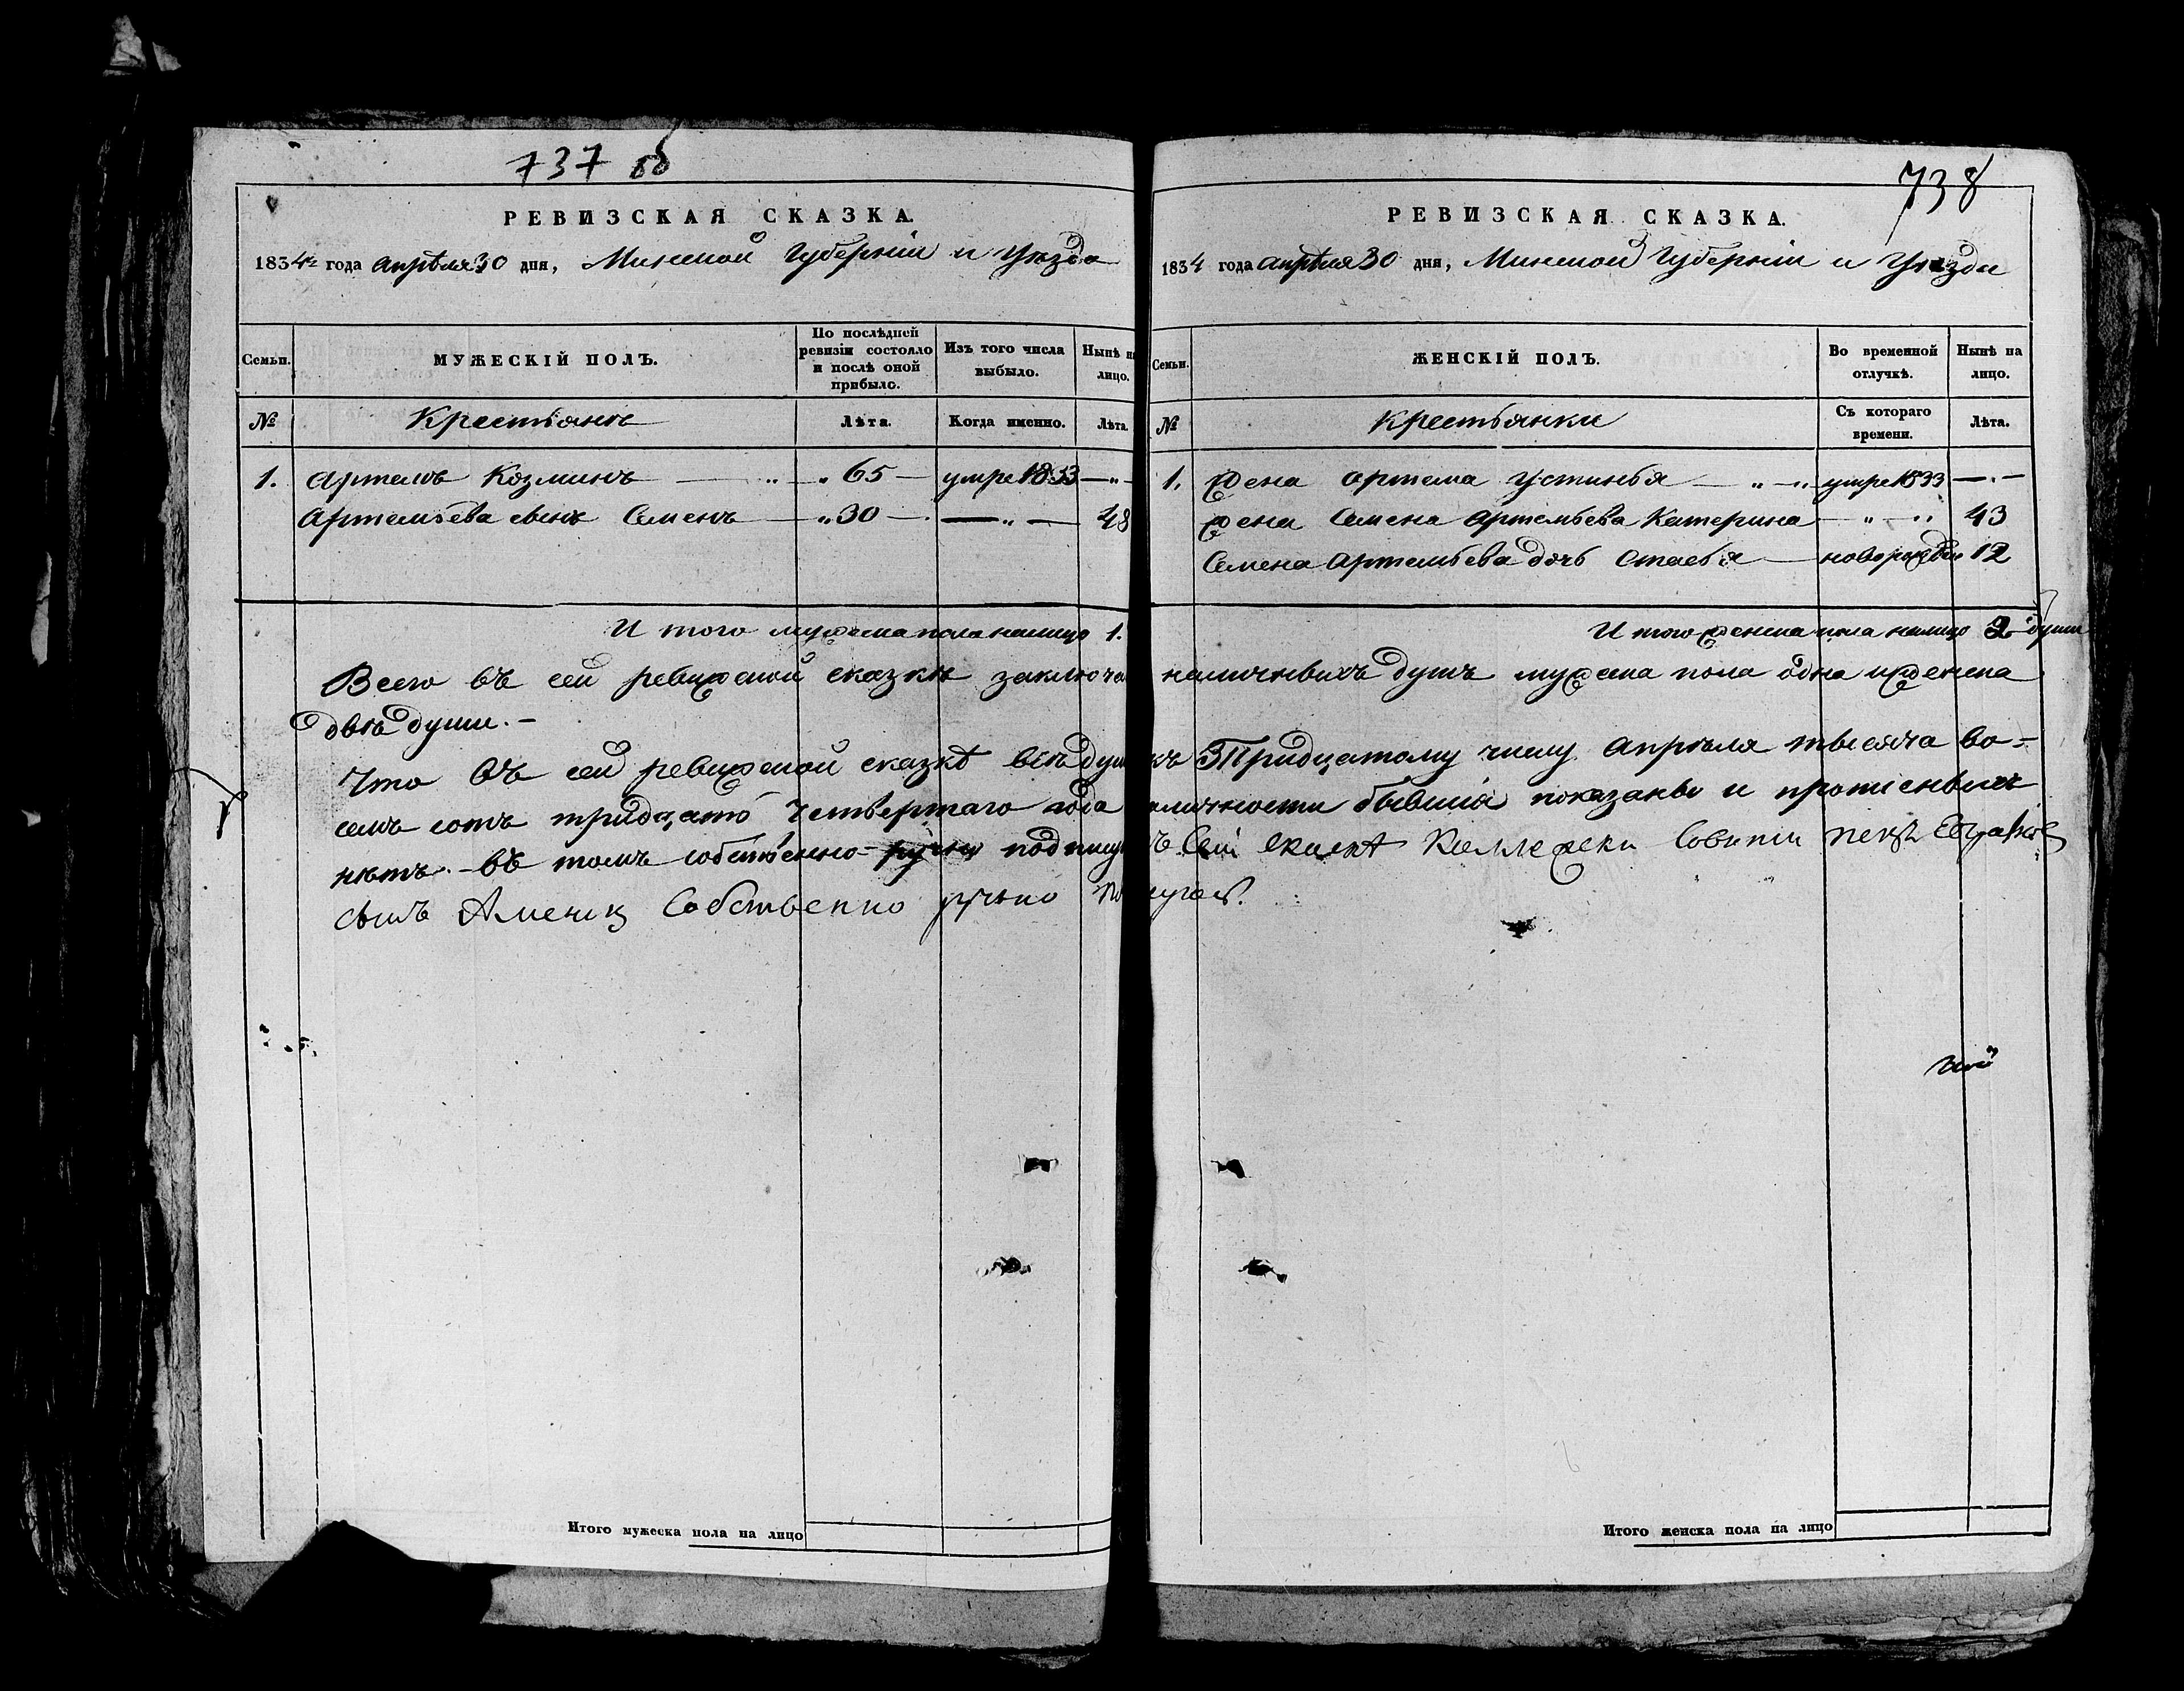 737 об
РЕВИЗСКАЯ СКАЗКА.
1834го года апрѣля 30 дня, Минской Губерніи и Уѣзда
Семьи.
МУЖЕСКІЙ ПОЛЪ.
По послѣдней ревизіи состояло и послѣ оной прибыло.
Изъ того числа выбыло.
Нынѣ на лицо.
№
Крестьянъ
Лѣта.
Когда именно.
Лѣта.
1. Артемъ Козминъ — " — " 65 — умре 1833 — " —
Артемьева сынъ Семенъ — " 30 — — " — 48
И того мужеска пола налицо 1.
738
РЕВИЗСКАЯ СКАЗКА.
1834 года апрѣля 30 дня, Минской Губерніи и Уѣзда
Семьи.
ЖЕНСКІЙ ПОЛЪ.
Во временной отлучкѣ.
Нынѣ на лицо.
№
Крестьянки
Съ котораго времени.
Лѣта.
1. Жена Артема Устинья — " — " умре 1833 — " —
Жена Семена Артемьева Катерина — " — " 43
Семена Артемьева дочь Стася — новорожден 12
И того женска пола налицо 2 души
Всего въ сей ревижской сказкѣ заключа наличныхъ душъ мужеска пола одна и женска
двѣ души. —
Что въ сей ревижской сказкѣ всѣ душ къ Тридцатому числу Апрѣля тысяча во-
семь сотъ тридцать четвертаго года аличности бывшіа показаны и прописныхъ
нѣтъ. – въ томъ собственно ручно подпису Сей Коллежски Совитни
сынъ Собственно ручно
Итого мужеска пола на лицо
Итого женска пола на лицо